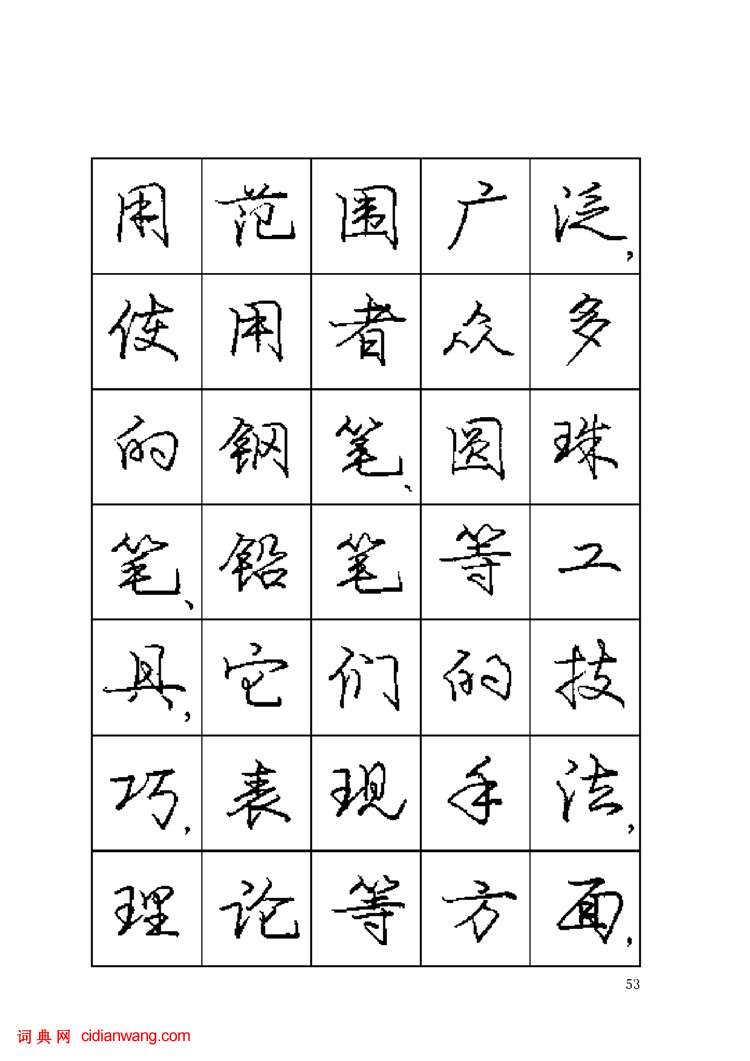 用范围广泛，
使用者众多
的钢笔、圆珠
笔、铅笔等工
具，它们的技
巧，表现手法，
理论等方面，
53
词典网 cidianwang.com